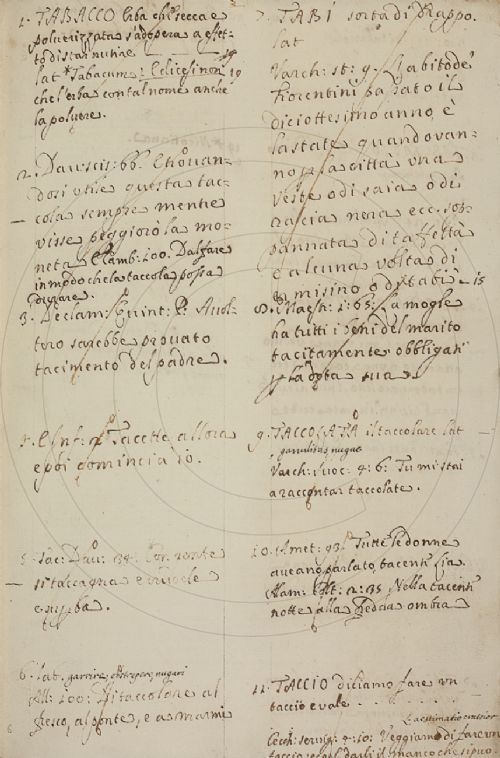 1. TABACCO erba che secca e
polverizzata s'adopera a effet-
to di star nutire
lat. Tabacum:
che l'erba con tal nome anche
la polvere.
2. Dav: scis: 66. Trovan-
dosi utile questa tac-
cola sempre mentre
visse peggiorò la mo-
neta e Camb: 100. Da fare
in modo che la taccola possa
durare.
3. Declam: Quint: P. Avol-
tero sarebbe provato
tacimento del padre.
4. E Inf: 9. Tacette allora
e poi comincia io.
5. Tac: Dav: 34.
si taccagna e
6. lat. garrire, obstrepere, nugari
All: 100: Di taccolare al
fresco, al ponte, e a' marmi
7. TABÌ sorta di drappo.
lat
Varch: st: 9. L'abito de'
Fiorentini passato il
diciottesimo anno è
la state quando van-
no per la città una
veste o di saia o di
rascia nera ecc. sop-
pannata di taffettà
e alcuna volta di
ermisino o di tabì
8. Maestr: 1: 65: La moglie
ha tutti i beni del marito
tacitamente obbligati
per la dota sua.
9. TACCOLATA il taccolare lat
garrulitas nugae
Varch: Suoc: 4: 6: Tu mi stai
a raccontar taccolate.
10. Amet: 93. Tutte le donne
aveano parlato, tacenti Lia.
Alam: Colt: 2: 35. Nella tacente
notte alla fredda ombra
11. TACCIO diciamo fare un
taccio e vale
Lat. aestimatio communior
Cecch: servig: 4: 10: Veggiamo di fare un
taccio